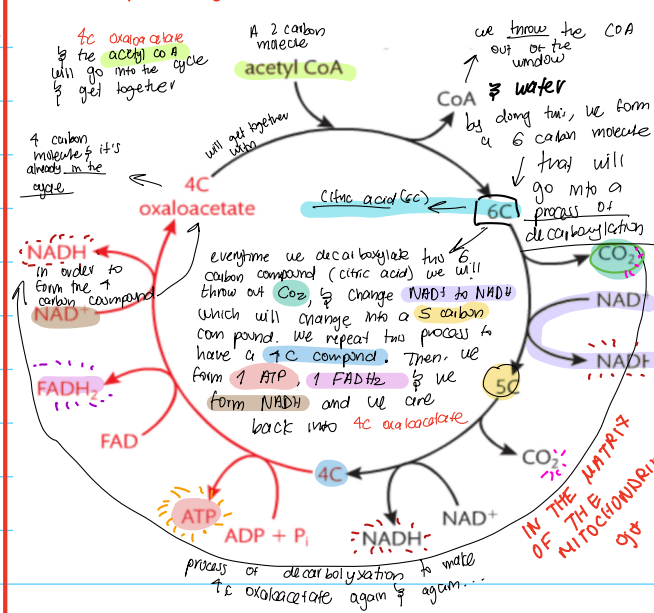 4c oxaloacetate
& the acetyl coA
will go into the cycle
& get together
A 2 carbon
molecule
acetyl CoA
we throw the COA
out of the
window
CoA
& water
by doing this, we form
a 6 carbon molecule
that will
go into a
process of
decarboxylation
4 carbon
molecule & it's
already in the
cycle
will get together
with
4C
oxaloacetate
Citric acid (6c)
6C
NADH
in order to
form the 4
carbon coumpound
NAD+
FADH2
FAD
everytime we decarboxylate this 6
carbon compound (citric acid) we will
throw out Co2, & change NAD+ to NADH
which will change into a 5 carbon
compound. we repeat this process to
have a 4C compound. Then, we
form 1 ATP, 1 FADH2 & we
form NADH and we are
back into 4c oxaloacetate
CO2
NAD+
NADH
5C
CO2
4C
ATP
ADP + Pi
NADH
NAD+
IN THE MATRIX
OF THE
MITOCHONDRI
process of decarbolyxation to make
4c oxaloacetate again & again...